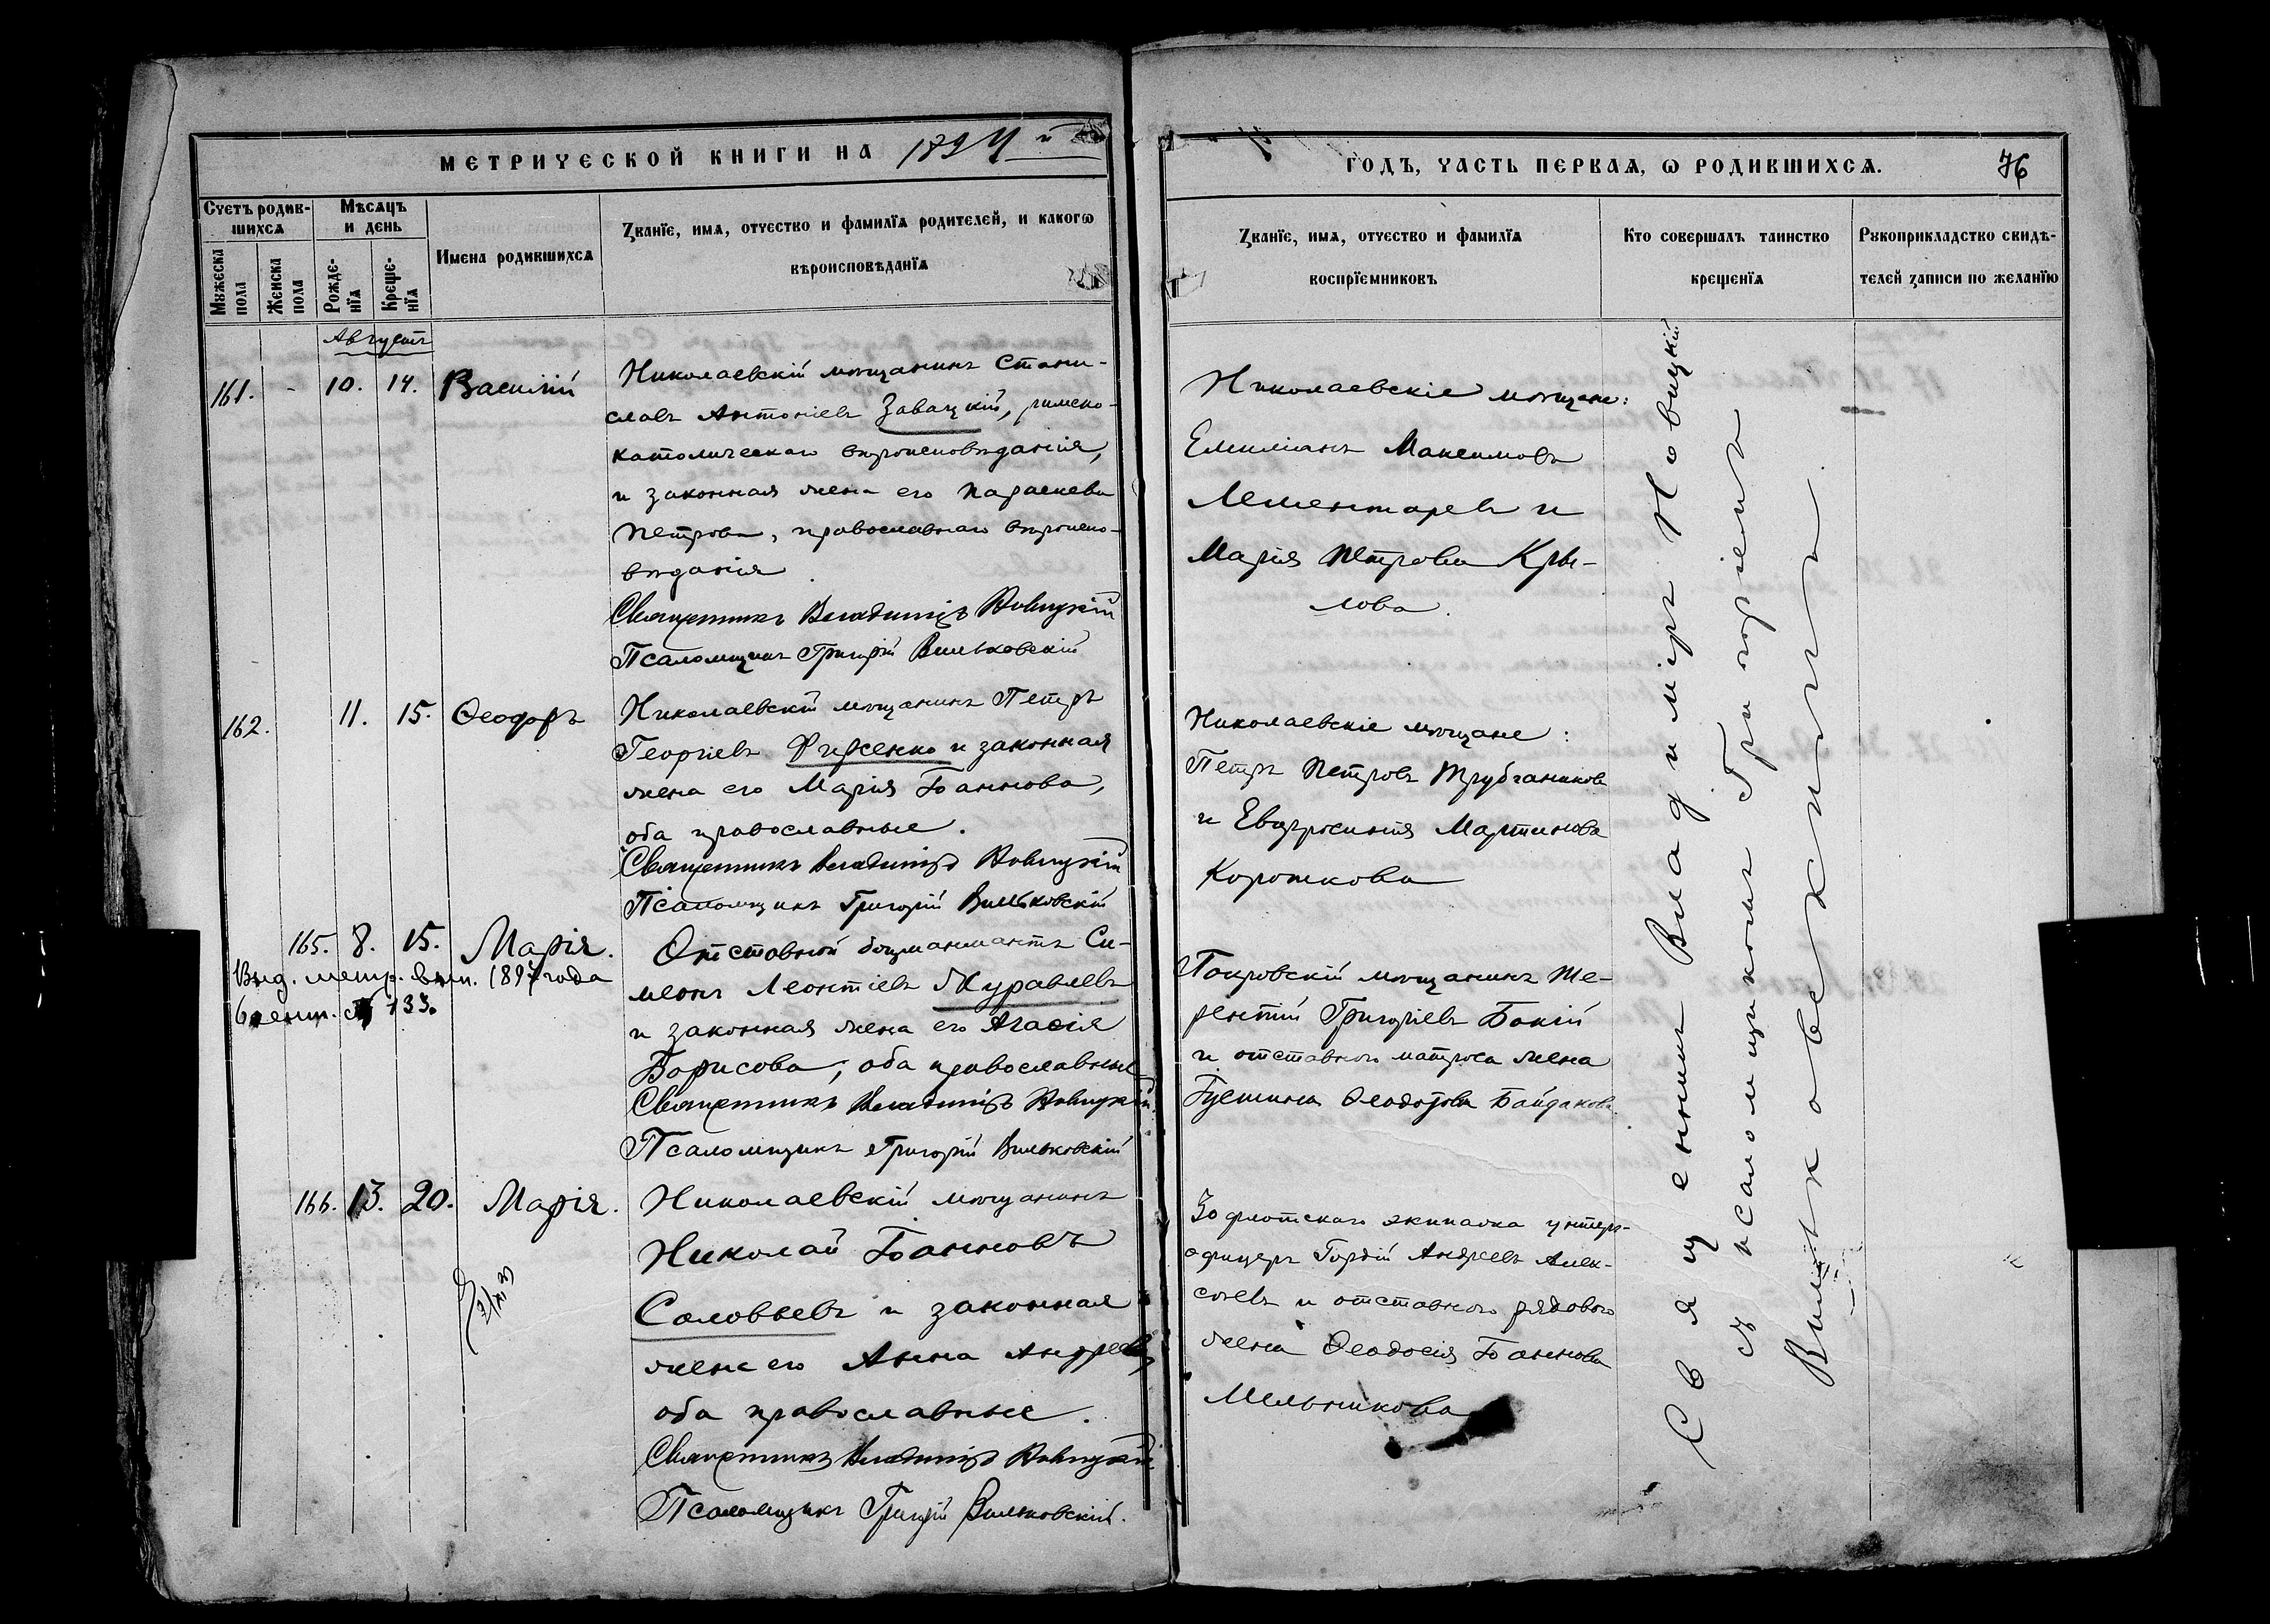 МЕТРИЧЕСКОЙ КНИГИ НА 1894 й
Счетъ родив-
шихся
Мѣсяцъ
и день
Имена родившихся
Званіе, имя, отчество и фамилія родителей, и какого
вѣроисповѣданія
Мужеска
пола
Женска
пола
Рожде-
нія
Креще-
нія
Августъ
161. - 10. 14. Василій
Николаевскій мѣщанинъ Стани-
славъ Антоніевъ Завацкій, римско-
католическаго вѣроисповѣданія,
и законная жена его Параскева
Петрова, православнаго вѣроиспо-
вѣданія
Священникъ Владиміръ Новицкій
Псаломщикъ Григорій Вильковскій
162. 11. 15. Ѳеодоръ
Николаевскій мѣщанинъ Петръ
Георгіевъ и законная
жена его Марія Іоаннова,
оба православные.
Священникъ Владиміръ Новицкій
Псаломщикъ Григорій Вильковскій
165. 8. 15. Марія.
Выд. метр. вып. 1897 года
133.
Отставной боцманматъ Си-
меонъ Леонтіевъ Журавлевъ
и законная жена его Агафія
Борисова, оба православные
Священникъ Владиміръ Новицкій
Псаломщикъ Григорій Вильковскій
166. 13. 20. Марія.
Николаевскій мѣщанинъ
Николай Іоанновъ
Соловьевъ и законная
жена его Анна Андреева,
оба православные.
Священникъ Владиміръ Новицкій
Псаломщикъ Григорій Вильковскій.
ГОДЪ, ЧАСТЬ ПЕРВАЯ, Ѡ РОДИВШИХСЯ. 76
Званіе, имя, отчество и фамилія
воспріемниковъ
Кто совершалъ таинство
крещенія
Рукоприкладство свидѣ-
телей записи по желанію
Николаевскіе мѣщане:
Емиліанъ Максимовъ
и
Марія Петрова Кры-
лова.
Николаевскіе мѣщане:
Петръ Петровъ Трубчаниковъ
и Евфросинія Мартинова
Короткова
Покровскій мѣщанинъ Те-
рентій Григоріевъ Бокій
и отставного матроса жена
Ѳеодотова Байдакова
30 флотскаго экипажа унтеръ-
офицеръ Гордій Андреевъ Алек-
сѣевъ и отставного рядового
жена Ѳеодосія Іоаннова
Мельникова
Священникъ Владиміръ Новицкій
съ псаломщикомъ Григоріемъ
Вильковскимъ.